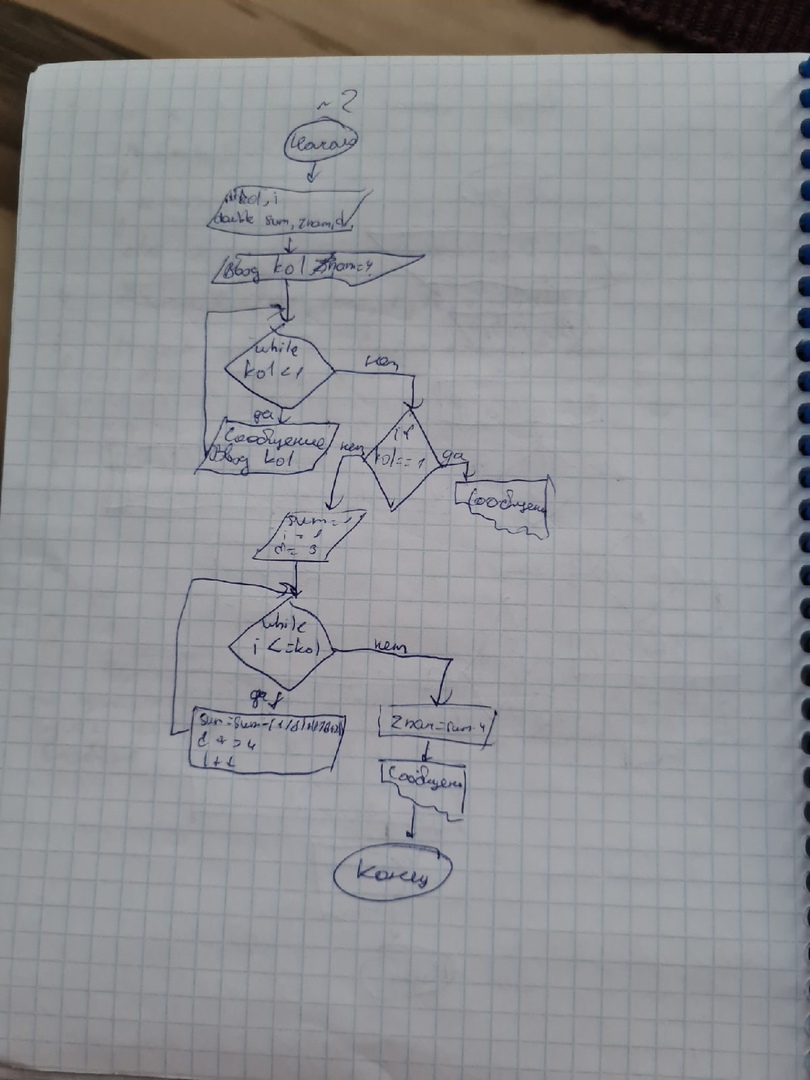 ~2
Начало
int kol, i
double sum, znam, d,
Ввод kol znam=4
while
kol<1
нет
да
Сообщение
Ввод kol
if
kol==1
нет
да
Сообщени
sum=1
i=1
d=3
while
i<=kol
нет
да
d+=4
i++
Znam=sum*4
Сообщени
Конец